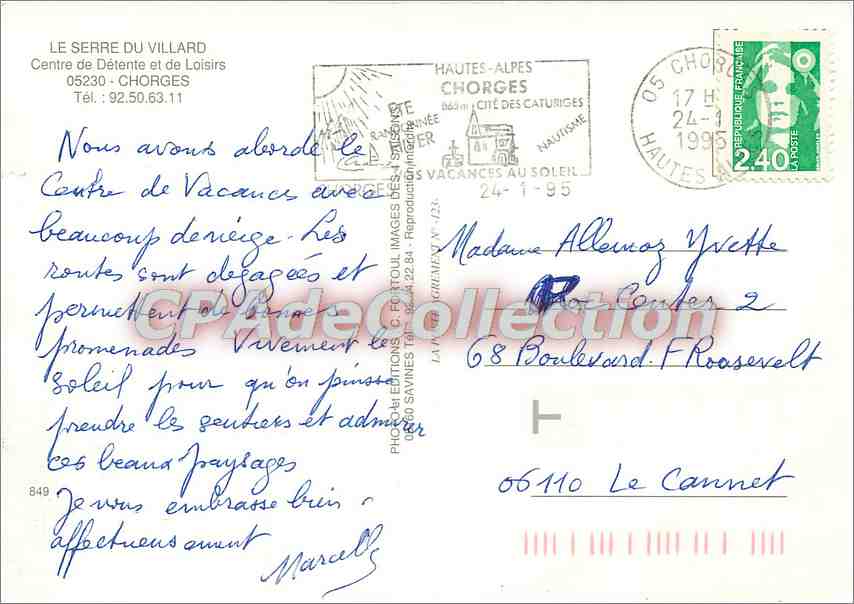 LE SERRE DU VILLARD
Centre de Détente et de Loisirs
05230 - CHORGES
Tél. : 92.50.63.11
Nous avons abordé le
Centre de Vacances avec
beaucoup de neige. Les
routes sont dégagées et
permettent de bonnes
promenades Vivement le
soleil pour qu'on puisse
prendre les sentiers et admirer
ces beaux paysages
Je vous embrasse bien
affectueusement
Marcelle
849
PHOTO et EDITIONS C. FORTOUL IMAGES DES 4 SAISONS
05160 SAVINES Tél. 92.44.22.84 - Reproduction interdite
LA POSTE AGREMENT N° -123-
HAUTES-ALPES
CHORGES
CITÉ DES CATURIGES
ETE
RANDONNÉE
NAUTISME
VACANCES AU SOLEIL
24-1-95
05 CHORGES
17 H
24-1
1995
HAUTES
REPUBLIQUE FRANÇAISE
2,40
LA POSTE
Madame Allemoz Yvette
Center 2
68 Boulevard F Roosevelt
06110 Le Cannet
CPAdeCollection